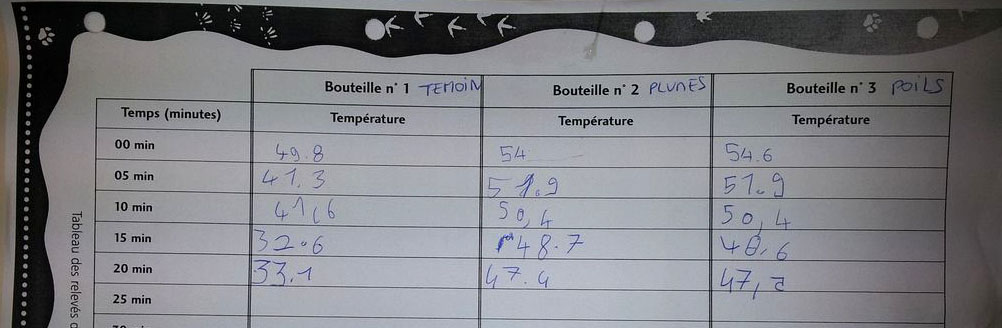 Bouteille n° 1 TEMOIN Bouteille n° 2 PLUMES Bouteille n° 3 POILS
Temps (minutes) Température Température Température
00 min 49.8 54 54.6
05 min 41.3 51.9 51.9
10 min 41,6 50,4 50,4
15 min 32.6 48.7 48,6
20 min 33.1 47.4 47,
25 min
Tableau des relevés